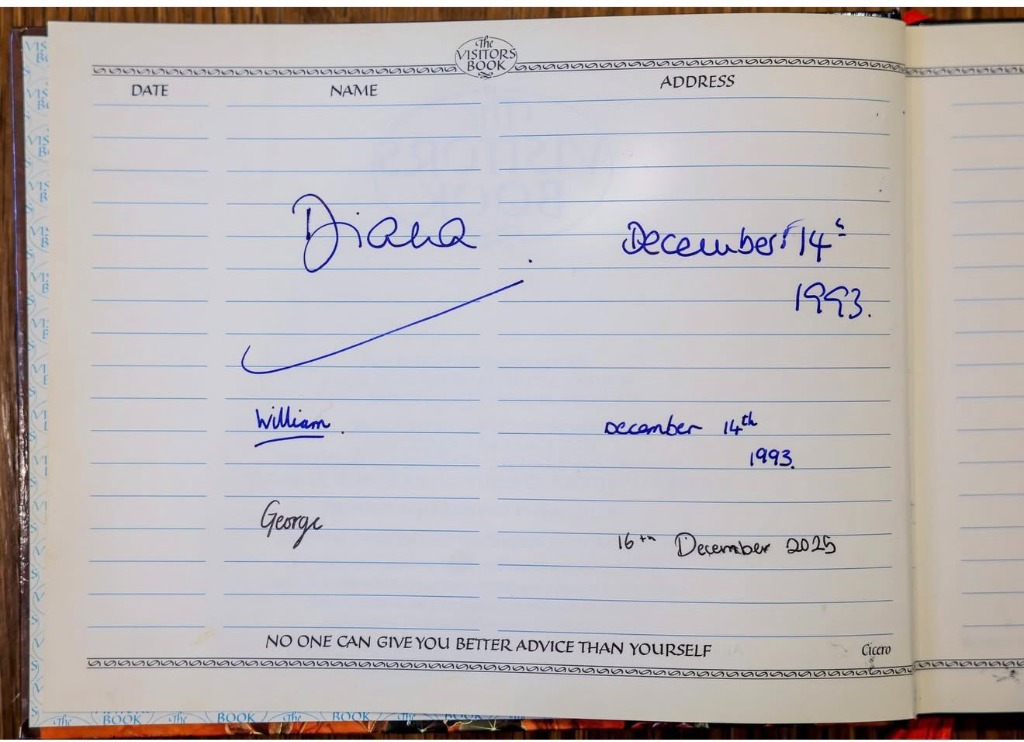 The
VISITORS
BOOK
DATE NAME ADDRESS
Diana December 14th
1993.
William. December 14th
1993.
George 16th December 2025
NO ONE CAN GIVE YOU BETTER ADVICE THAN YOURSELF
Cicero
The BOOK The BOOK The BOOK The BOOK The